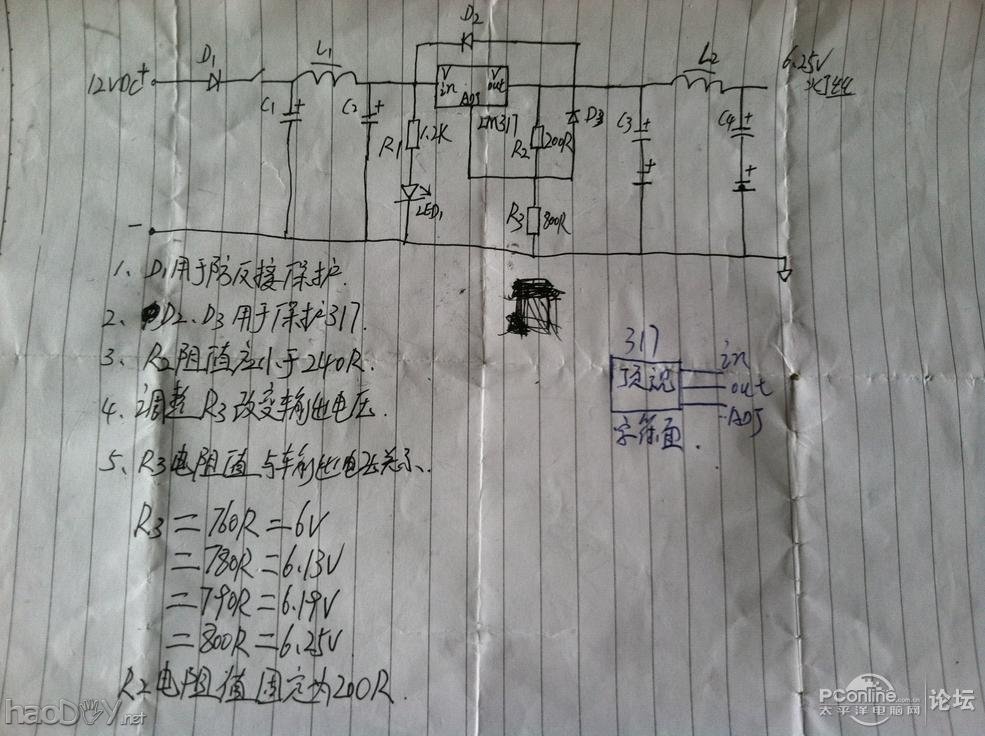 D2
D1
L1
L2
12VDC+
V in
V out
ADJ
LM317
6.25V
C1 +
C2 +
R1 1.2K
R2 200R
D3
C3 +
C4 +
+
+
LED1
R3 800R
−
1、D1用于防反接保护.
2、D2、D3用于保护317.
3、R2阻值应小于240R.
4、调整R3改变输出电压.
5、R3电阻值与输出电压关系.
R3=760R=6V
=780R=6.13V
=790R=6.19V
=800R=6.25V
R2电阻值固定为200R.
317
顶视
in
out
ADJ
字符面.
haoDIY.net
PConline.com.cn
太平洋电脑网
论坛